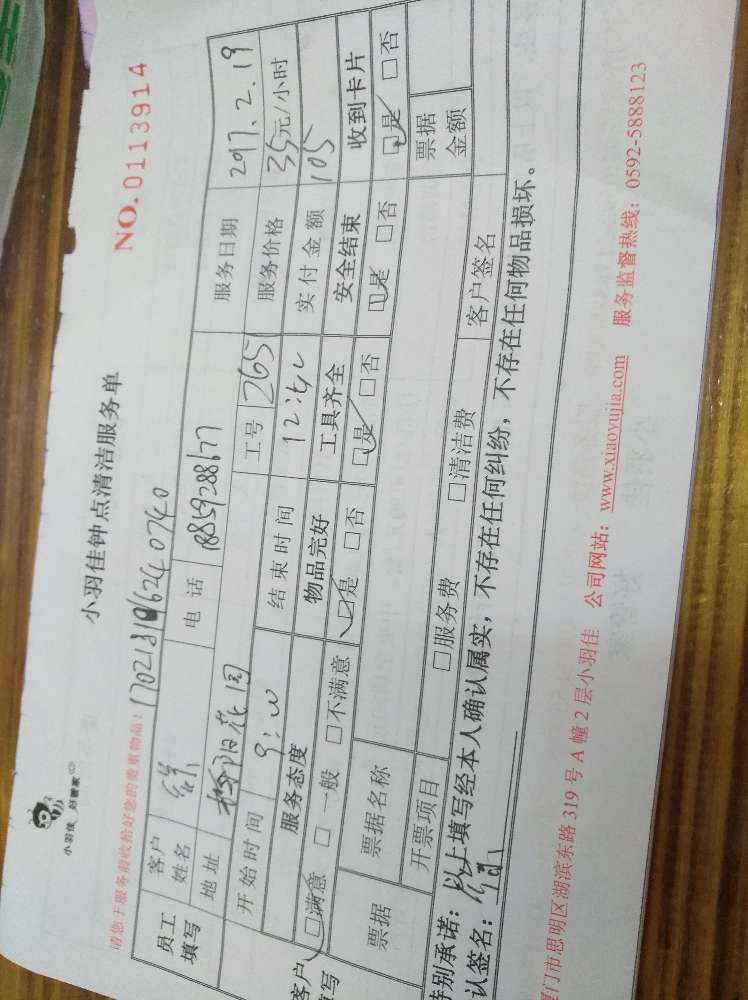 小羽佳 好管家
小羽佳钟点清洁服务单
NO.0113914
请您于服务前收拾好您的贵重物品!
员工填写 客户姓名 徐 电话 服务日期 2017.2.19
地址 花园 工号 265 服务价格 35元/小时
开始时间 9:00 结束时间 12:00 实付金额 105
服务态度 物品完好 工具齐全 安全结束 收到卡片
客户填写 □满意 □一般 □不满意 □是 □否 □是 □否 □是 □否 □是 □否
票据 票据名称 票据金额
开票项目 □服务费 □清洁费 客户签名
特别承诺:以上填写经本人确认属实,不存在任何纠纷,不存在任何物品损坏。
认签名:
厦门市思明区湖滨东路319号A幢2层小羽佳 公司网站:www.xiaoyujia.com 服务监督热线:0592-5888123